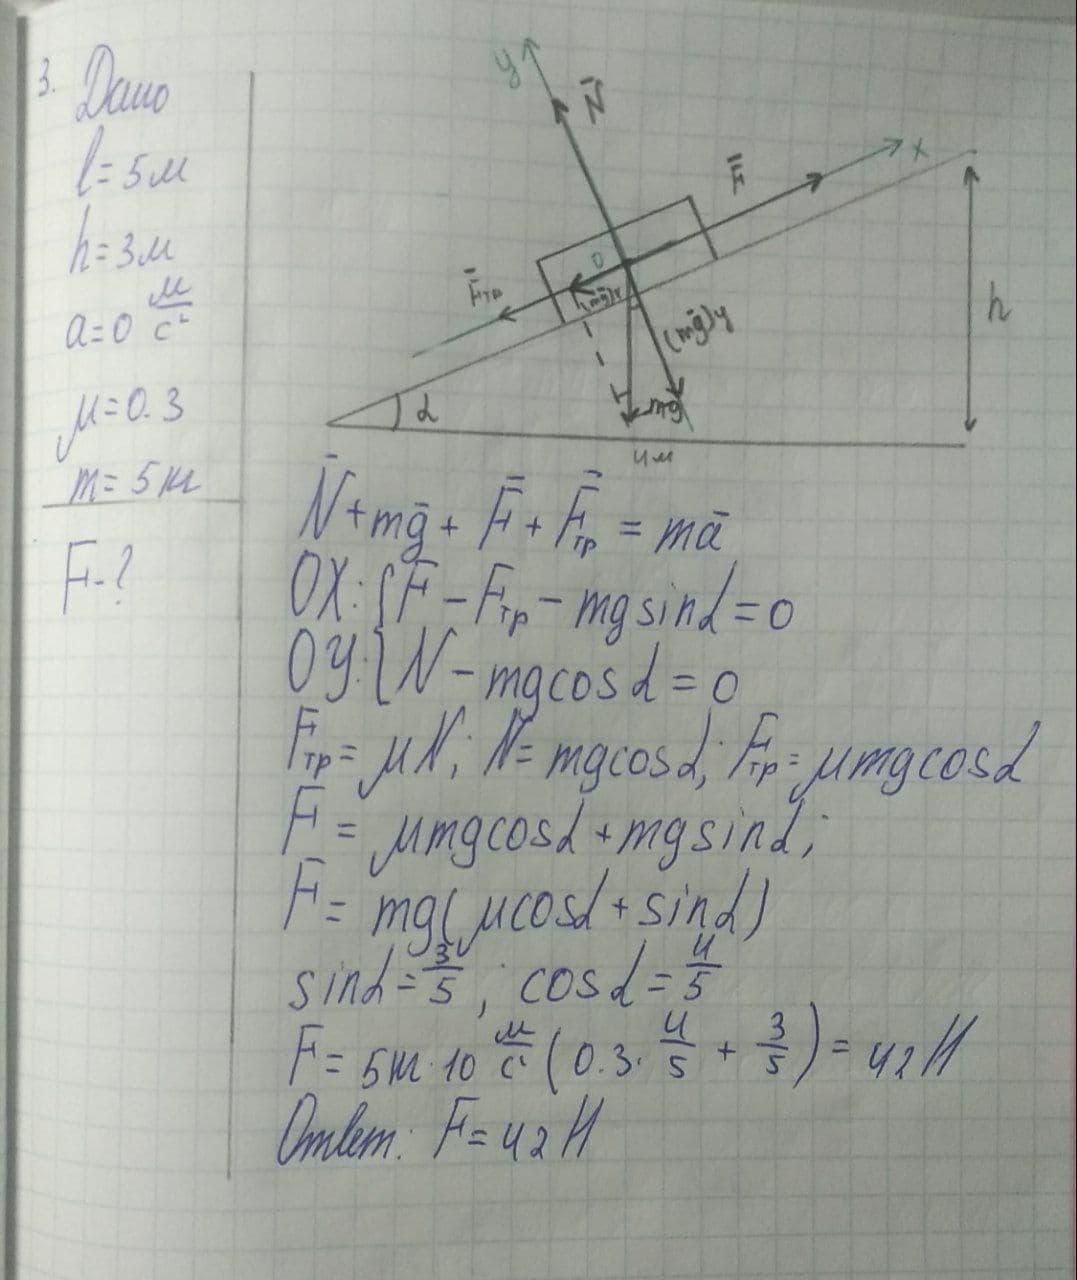 3. Дано
l = 5м
h = 3м
a = 0 м/с²
μ = 0.3
m = 5кг
F - ?
y
N̄
F̄
x
0
F̄тр
(mḡ)x
(mḡ)y
mg
h
α
4м
N̄ + mḡ + F̄ + F̄тр = mā
OX: { F - Fтр - mg sinα = 0
OY: { N - mg cosα = 0
Fтр = μN; N = mgcosα; Fтр = μmgcosα
F = μmgcosα + mgsinα;
F = mg(μcosα + sinα)
sinα = 3/5 ; cosα = 4/5
F = 5кг · 10 м/с² (0.3 · 4/5 + 3/5) = 42 Н
Ответ: F = 42 Н